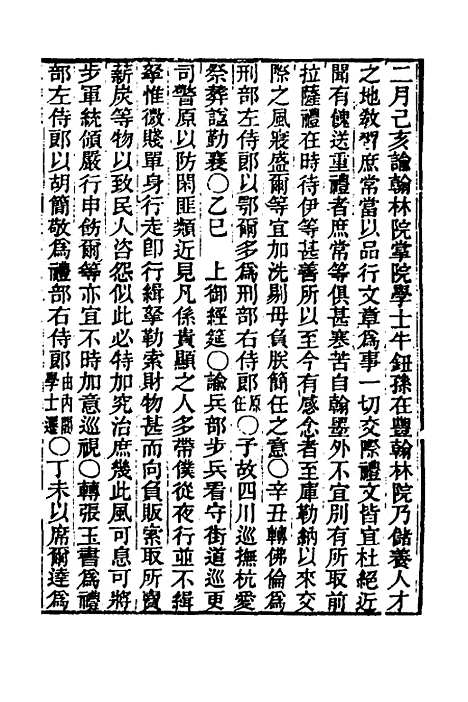 二月己亥諭翰林院掌院學士牛鈕孫在豐翰林院乃儲養人才
之地敎習庶常當以品行文章爲事一切交際禮文皆宜杜絕近
聞有餽送重禮者庶常等俱甚寒苦自翰墨外不宜別有所取前
拉薩禮在時待伊等甚善所以至今有感念者至庫勒納以來交
際之風寖盛爾等宜加洗剔毋負朕簡任之意〇辛丑轉佛倫爲
刑部左侍郎以鄂爾多爲刑部右侍郎原任〇予故四川巡撫杭愛
祭葬諡勤襄〇乙巳　上御經筵〇諭兵部步兵看守街道巡更
司警原以防閑匪類近見凡係貴顯之人多帶僕從夜行並不緝
拏惟微賤單身行走卽行緝拏勒索財物甚而向負販索取所賣
薪炭等物以致民人咨怨似此必特加究治庶幾此風可息可將
步軍統領嚴行申飭爾等亦宜不時加意巡視〇轉張玉書爲禮
部左侍郎以胡簡敬爲禮部右侍郎由內閣學士遷〇丁未以席爾達爲